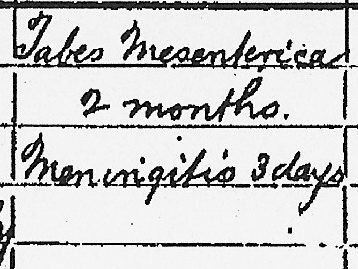 Tabes Mesenterica
2 months.
Meningitis 3 days